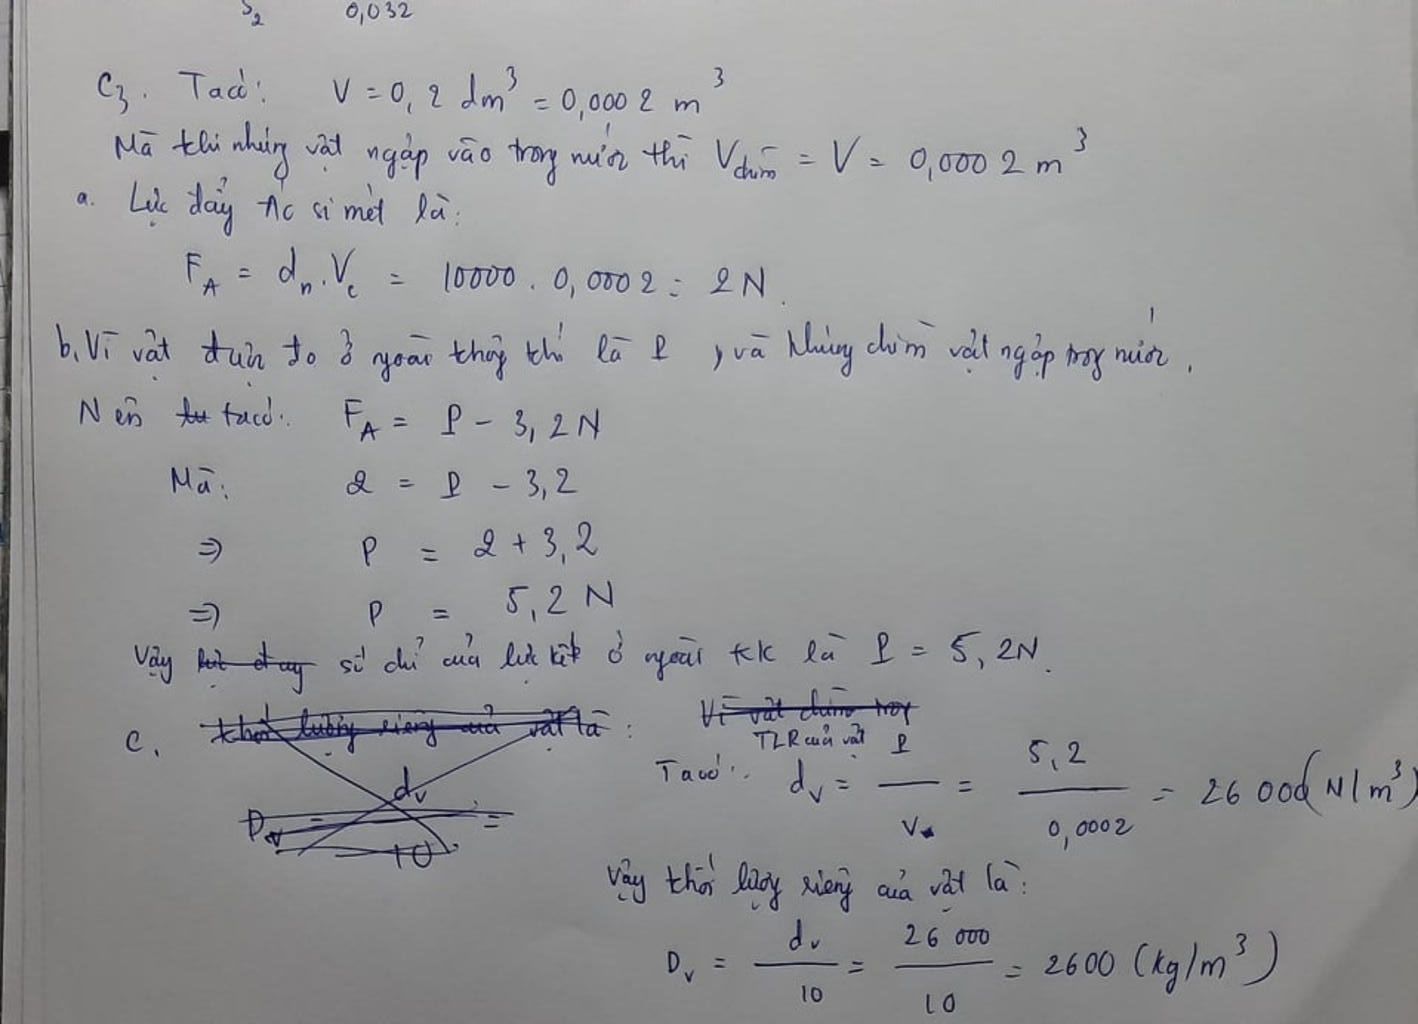 S₂ 0,032
C3. Ta có: V = 0,2 dm³ = 0,0002 m³
Mà khi nhúng vật ngập vào trong nước thì Vchìm = V = 0,0002 m³
a. Lực đẩy Ác si mét là:
F_A = d_n.V_c = 10000 . 0,0002 = 2N.
b. Vì vật được đo ở ngoài không khí là P, và nhúng chìm vật ngập trong nước.
Nên ta có: F_A = P - 3,2N
Mà: 2 = P - 3,2
=> P = 2 + 3,2
=> P = 5,2 N
Vậy số chỉ của lực kế ở ngoài kk là P = 5,2N.
c. khối lượng riêng của vật là: Vì vật chìm trong
D_v = d_v / 10 =
TLR của vật
Ta có: d_v = P / V = 5,2 / 0,0002 = 26 000 (N/m³)
Vậy khối lượng riêng của vật là:
D_v = d_v / 10 = 26 000 / 10 = 2600 (kg/m³)